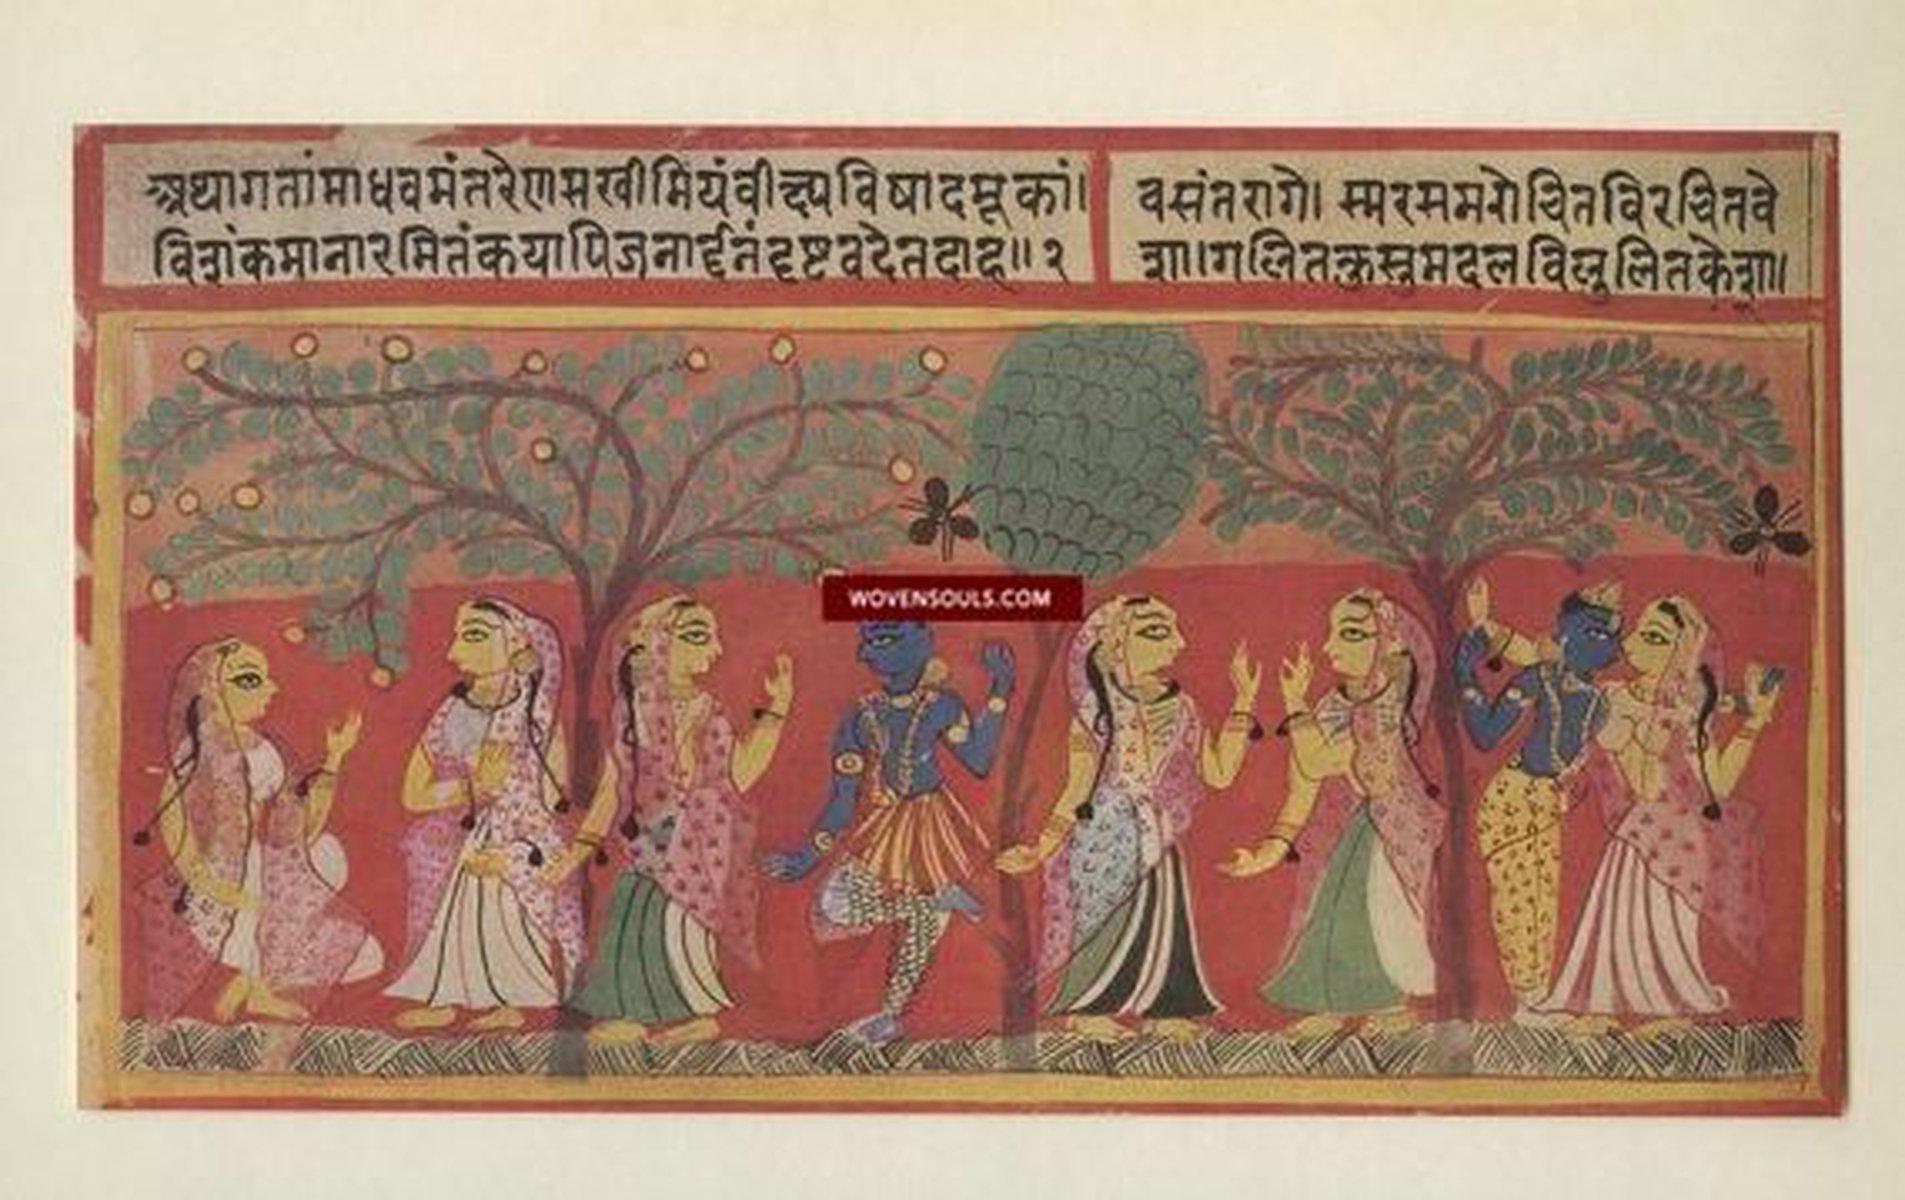 अथागतांमाधवमंतरेणसखीमियंवीक्ष्यविषादमूकां।
विशंकमानारमितंकयापिजनार्द्दनंदृष्टवदेतदाह॥२
वसंतरागे। स्मरसमरोचितविरचितवे
शा।गलितकुसुमदलविलुलितकेशा।
WOVENSOULS.COM